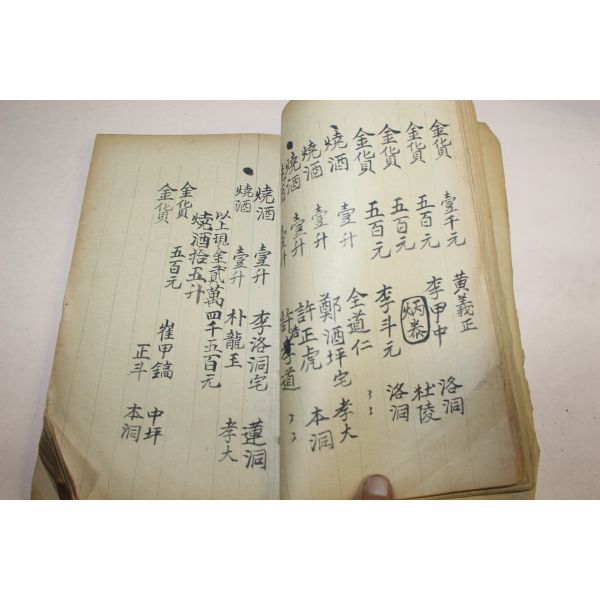 金貨 壹千元 黃義正 洛洞
金貨 五百元 李甲中 杜陵
金貨 五百元 炳泰 洛洞
金貨 五百元 李斗元 〻
燒酒 壹升 全道仁 孝大
燒酒 壹升 鄭酒坪宅 本洞
燒酒 壹升 許正虎 〻
燒酒 壹升 許 道
燒酒 壹升 李洛洞宅 蓮洞
燒酒 壹升 朴龍玉 孝大
以上現金貳萬四千五百元
燒酒拾五升
金貨 五百元 崔甲鎬 中坪
金貨 正斗 本洞